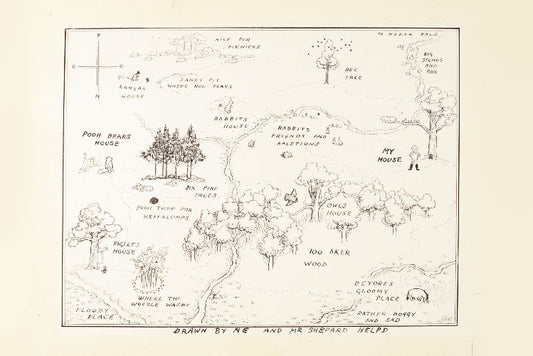 P
O
O
H
NICE FOR
PIKNICKS
TO NORTH POLE
BEE
TREE
BIG
STONES
AND
ROX
SANDY PIT
WHERE ROO PLAYS
KANGAS
HOUSE
RABBITS
HOUSE
RABBITS
FRIENDS AND
RALETIONS
POOH BEARS
HOUSE
MY
HOUSE
SIX PINE
TREES
POOH TRAP FOR
HEFFALUMPS
OWLS
HOUSE
PIGLETS
HOUSE
100 AKER
WOOD
WHERE THE
WOOZLE WASNT
FLOODY
PLACE
EEYORES
GLOOMY
PLACE
RATHER BOGGY
AND SAD
DRAWN BY ME AND MR SHEPARD HELPD